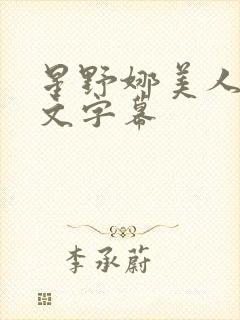 星野娜美人
文字幕
李承蔚